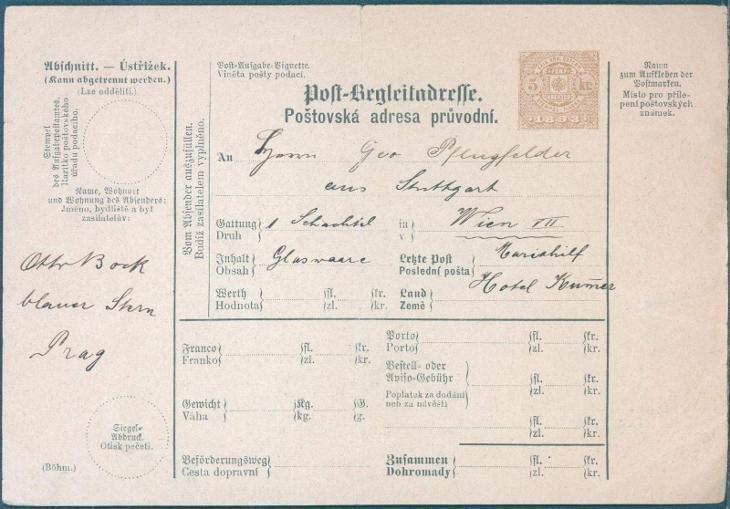 Abschnitt. — Ústřižek.
(Kann abgetrennt werden.)
(Lze odděliti.)
Stempel
des Aufgabepostamtes.
Razítko poštovského
úřadu podacího.
Name, Wohnort
und Wohnung des Absenders:
Jméno, bydliště a byt
zasílatelův:
Otto Bock
blauer Stern
Prag
Siegel-
Abdruck.
Otisk pečeti.
(Böhm.)
Vom Absender auszufüllen.
Budiž zasílatelem vyplněno.
Post-Aufgabe-Vignette.
Viněta pošty podací.
Post-Begleitadresse.
Poštovská adresa průvodní.
5 kr.
1893
Raum
zum Aufkleben der
Postmarken.
Místo pro přile-
pení poštovských
známek.
An Herrn Geo Pflugfelder
aus Stuttgart
Gattung 1 Schachtel in Wien
Druh v
Inhalt Glasware Letzte Post Mariahilf
Obsah Poslední pošta
Hotel Kummer
Werth fl. kr. Land
Hodnota zl. kr. Země
Franco fl. kr.
Franko zl. kr.
Porto fl. kr.
Porto zl. kr.
Bestell- oder
Aviso-Gebühr fl. kr.
Poplatek za dodání zl. kr.
neb za návěští
Gewicht Kg. G.
Váha kg. g.
fl. kr.
zl. kr.
Beförderungsweg
Cesta dopravní
Zusammen fl. kr.
Dohromady zl. kr.